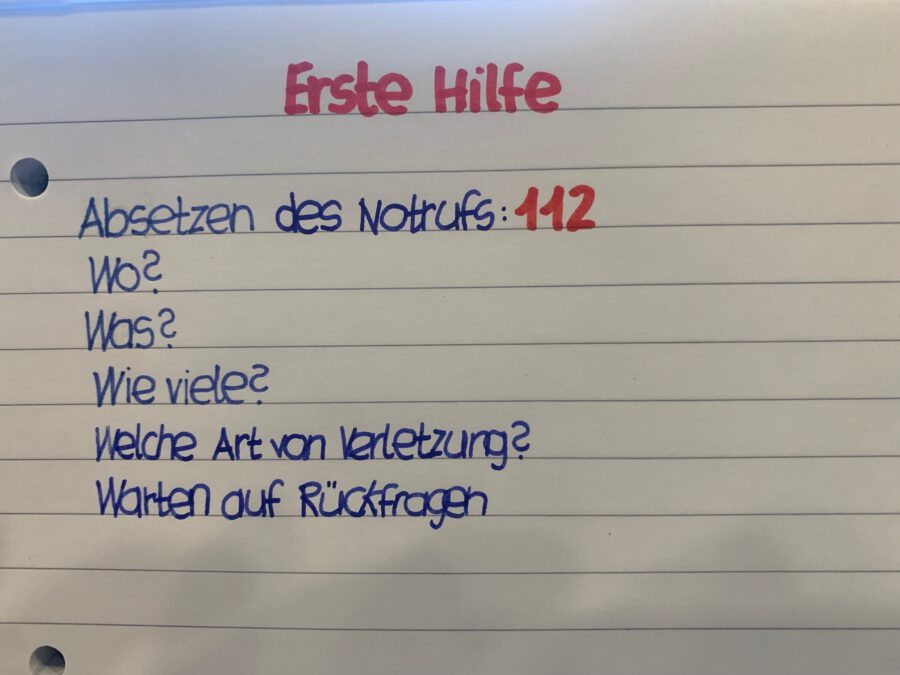 Erste Hilfe
Absetzen des Notrufs: 112
Wo?
Was?
Wie viele?
Welche Art von Verletzung?
Warten auf Rückfragen